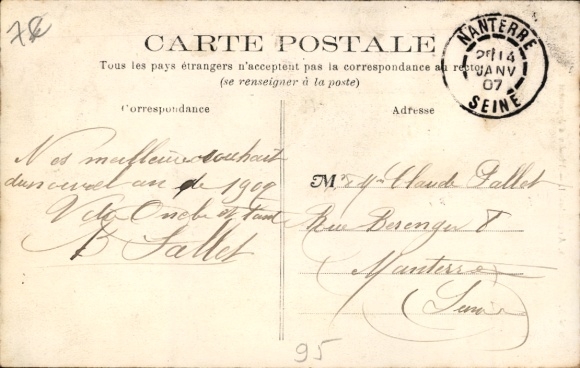 78
CARTE POSTALE
Tous les pays étrangers n'acceptent pas la correspondance au recto
(se renseigner à la poste)
NANTERRE
2E 14
JANV
07
SEINE
Correspondance
Adresse
Nos meilleurs souhait
du nouvel an de 1907
Oncle et Tante
Fallet
M Claude Fallet
Rue Berenger 8
Nanterre
Seine
95